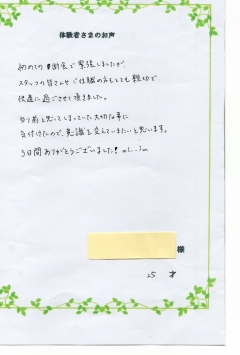 体験者さまのお声
初めての断食で緊張しましたが、
スタッフの皆さんやご住職の方もとても親切で
快適に過ごさせて頂きました。
当り前と思ってしまっていた大切な事に
気付けたので、意識を変えていきたいと思います。
3日間ありがとうございました! m(..)m
様
25 才